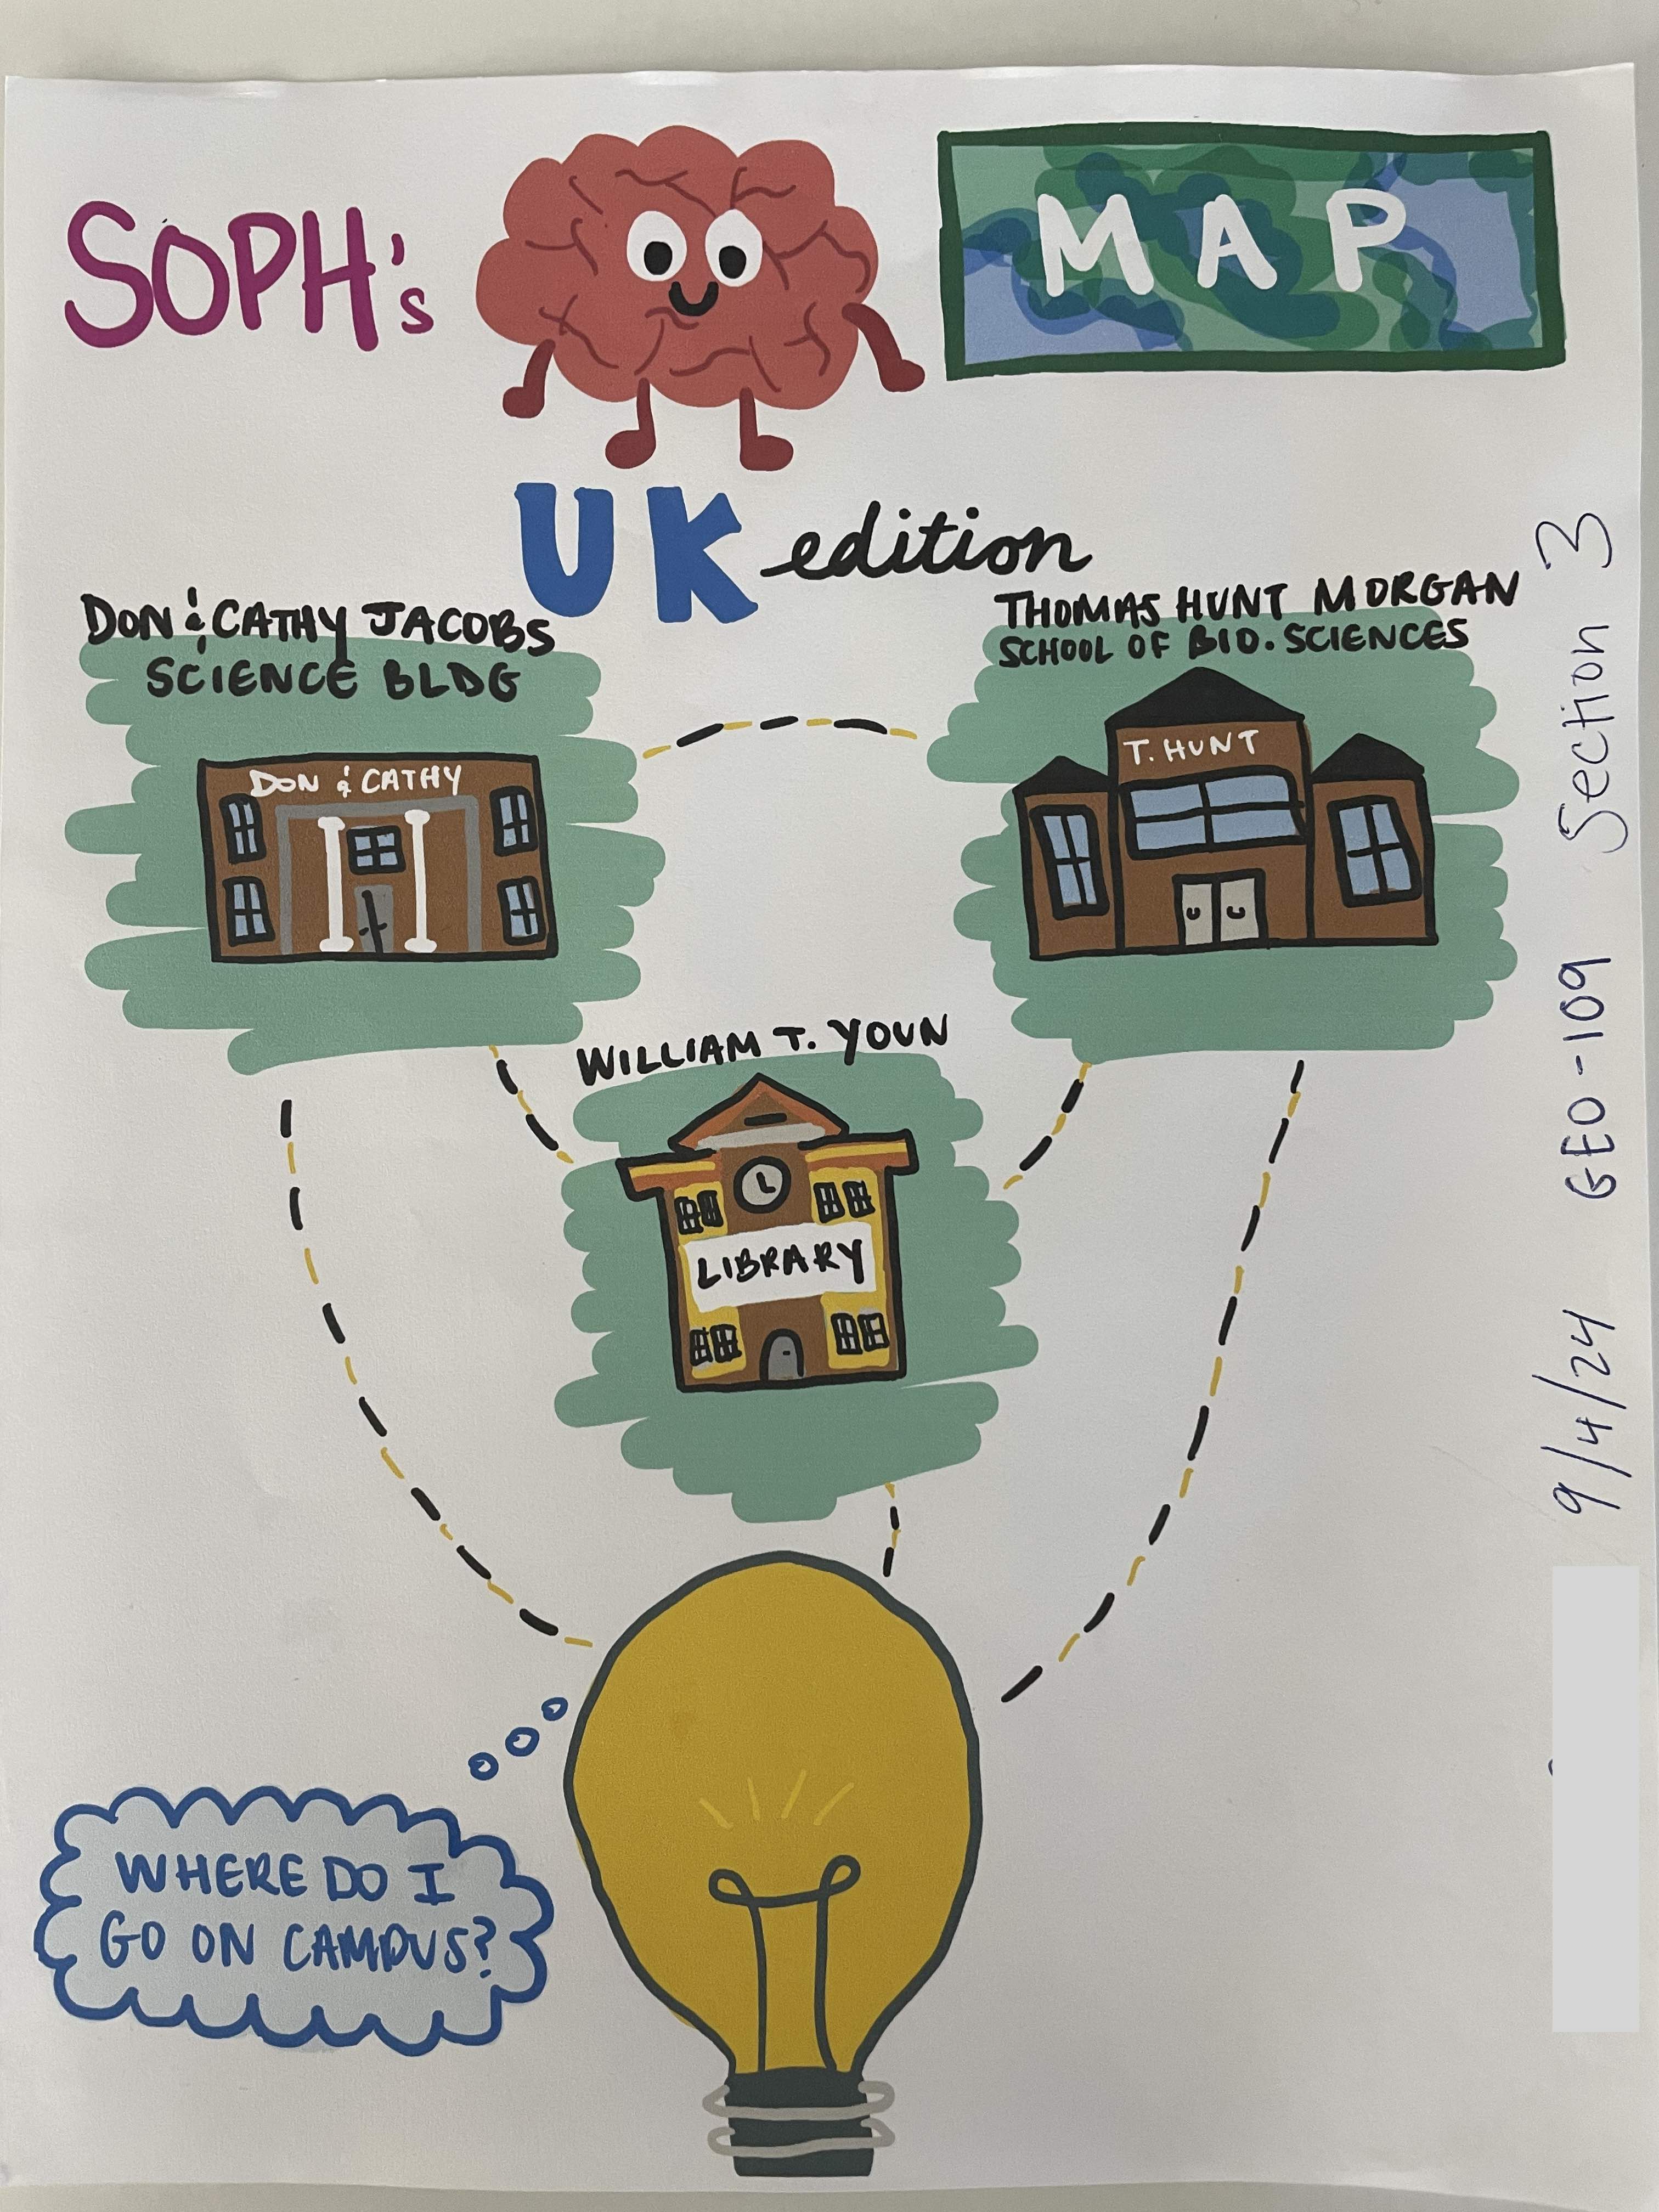 SOPH's
MAP
UK edition
DON & CATHY JACOBS
SCIENCE BLDG
DON & CATHY
THOMAS HUNT MORGAN
SCHOOL OF BIO. SCIENCES
T. HUNT
WILLIAM T. YOUN
LIBRARY
WHERE DO I
GO ON CAMPUS?
9/4/24 GEO-109 Section 3